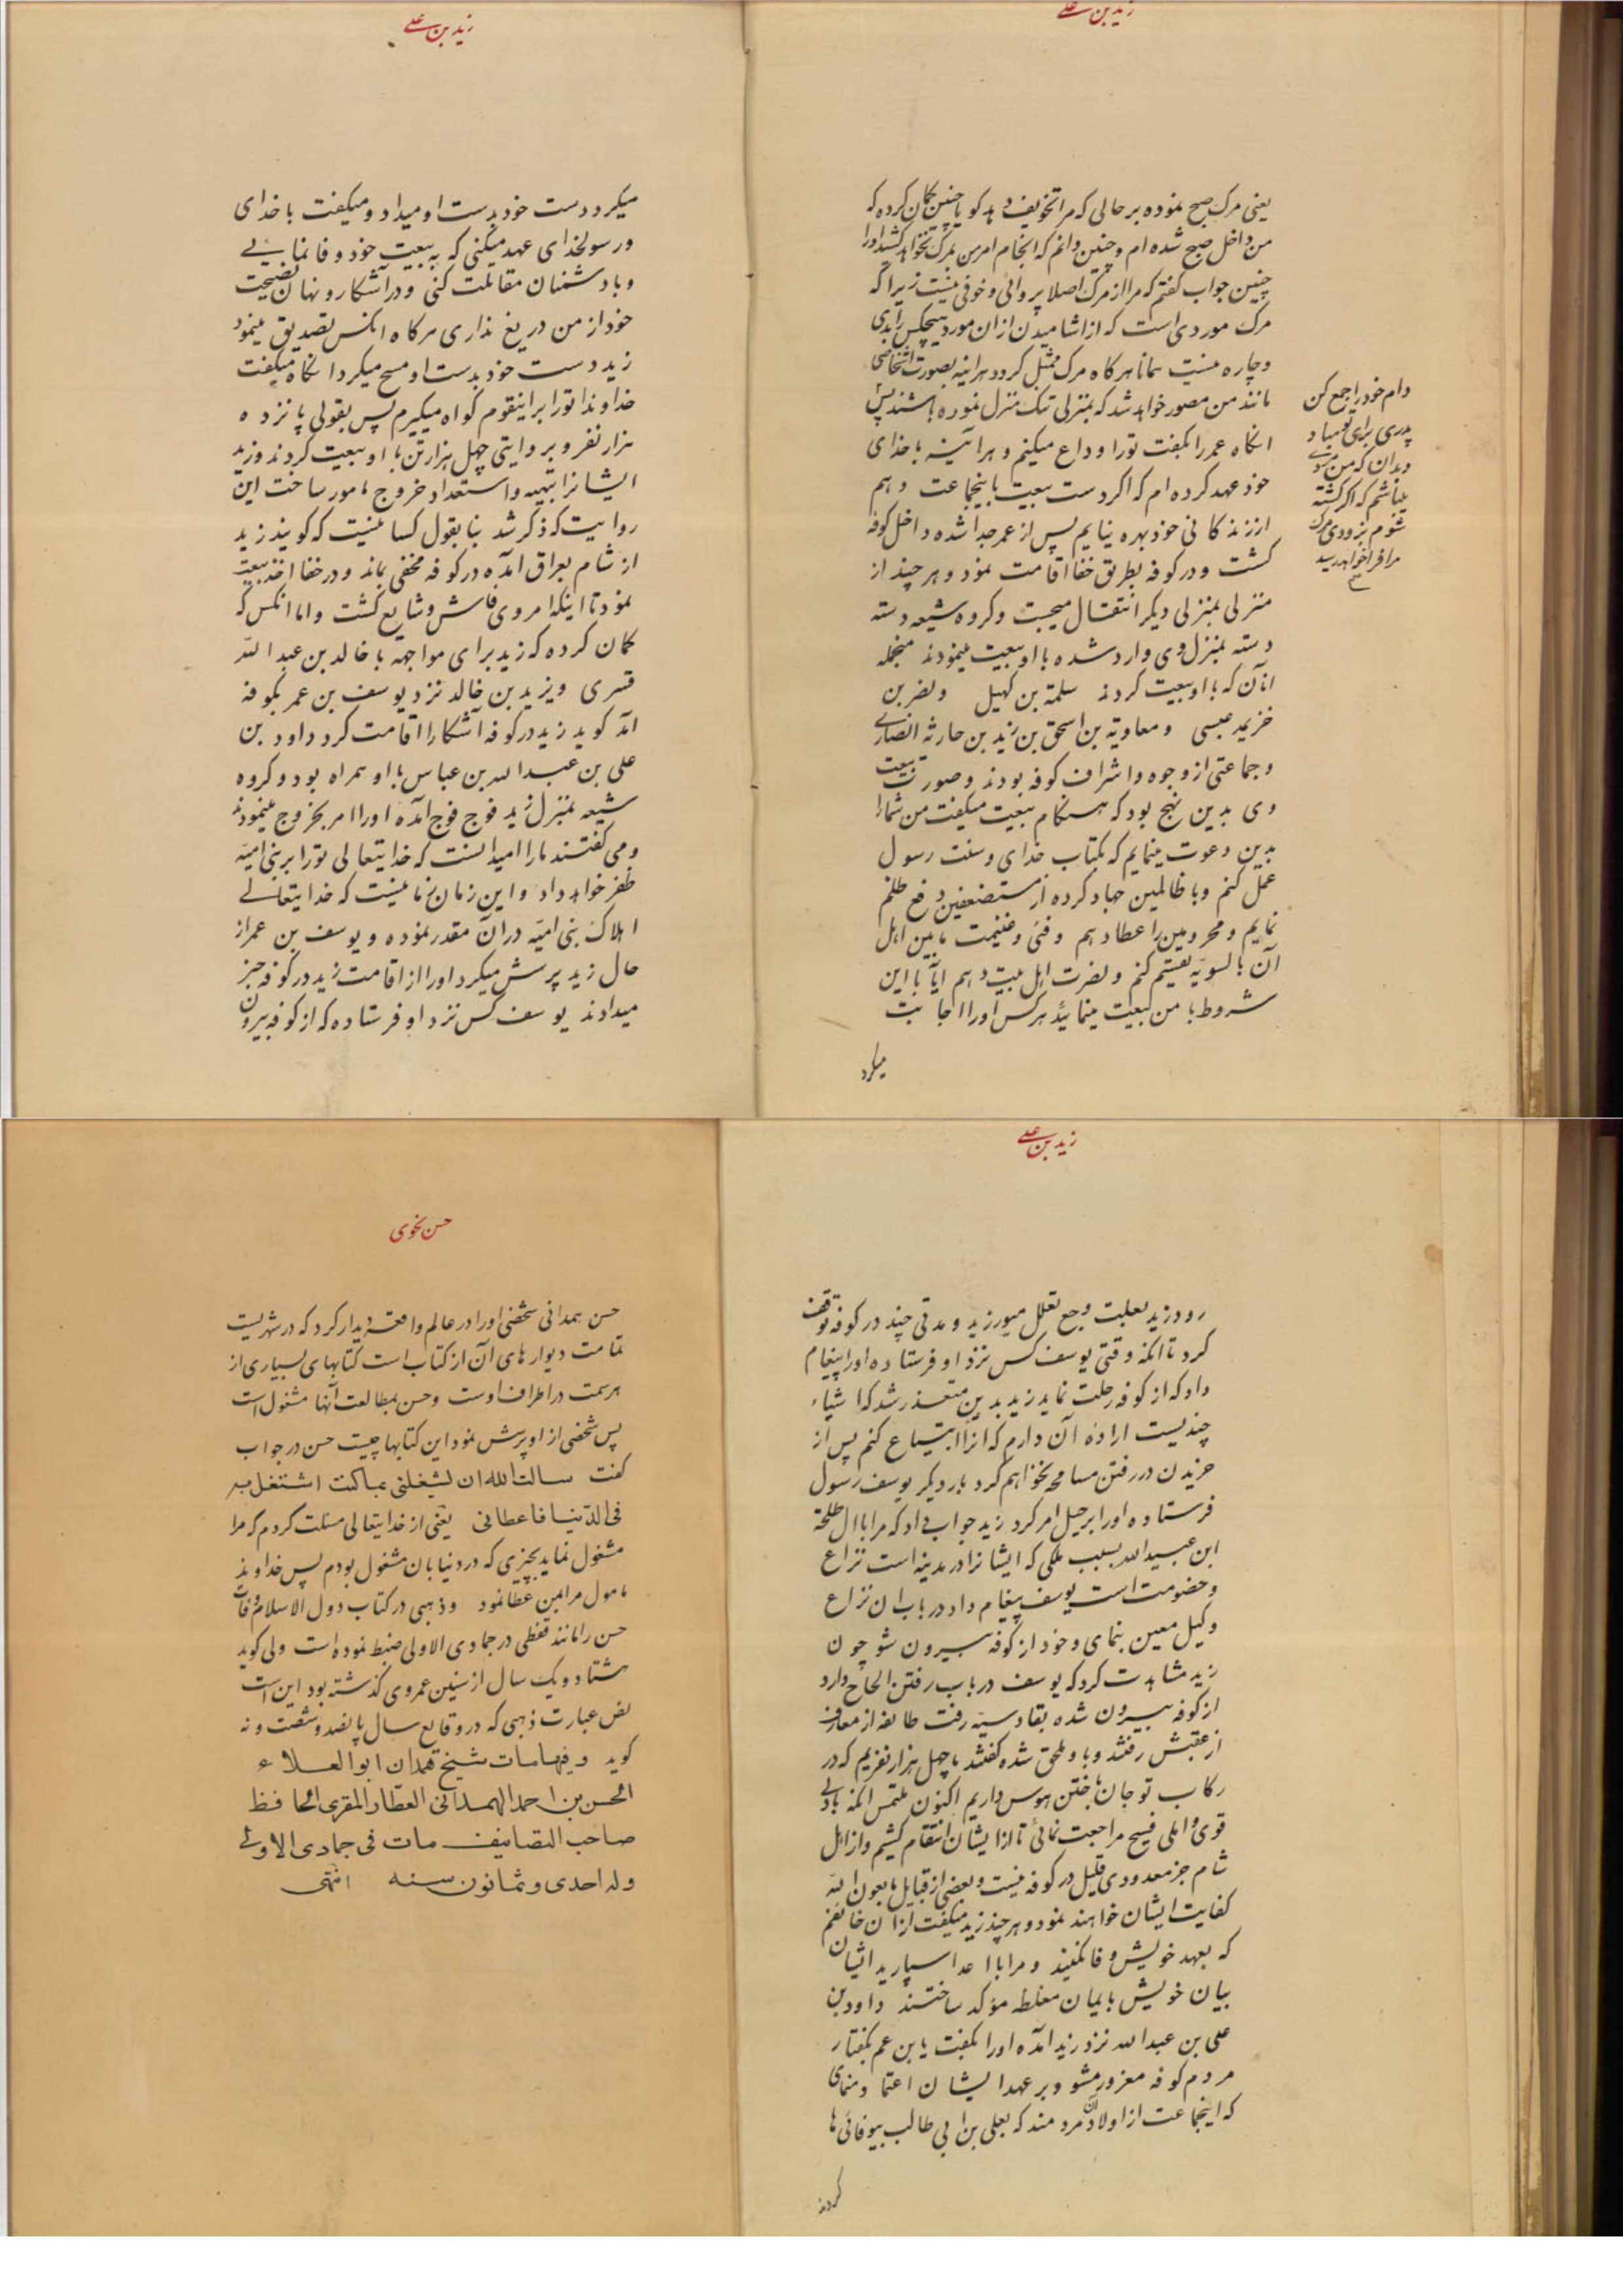 زید بن علی
یعنی مرک صبح نموده بر حالی که مرا تخویف دهد کویا چنین کمان کرده که
من داخل صبح شده ام و چنین دانم که انجام امر من بمرک نخواهد کشید اورا
چنین جواب کفتم که مرا از مرک اصلا پروائی و خوفی نیست زیرا که
مرک موردی است که از اشامیدن ازان مورد هیچکس را بدی
و چاره نیست همانا هرکاه مرک ممثل کردد هراینه بصورت اشخاصی
مانند من مصور خواهد شد که بمنزلی تنک منزل نموده باشند پس
انکاه عمر را بکفت تورا وداع میکنم و هر آینه با خدای
خود عهد کرده ام که اکر دست بیعت باینجماعت دهم
از زندکانی خود بهره نیابم پس از عمر جدا شده داخل کوفه
کشت و در کوفه بطریق خفا اقامت نمود و هر چند از
منزلی بمنزلی دیکر انتقال میجست و کروه شیعه دسته
دسته بمنزل وی وارد شده با او بیعت مینمودند منجمله
انان که با او بیعت کردند سلمة بن کهیل و نضر بن
خزیمه عبسی و معاویة بن اسحق بن زید بن حارثه انصاری
و جماعتی از وجوه و اشراف کوفه بودند و صورت بیعت
وی بدین نهج بود که هنکام بیعت میکفت من شما را
بدین دعوت مینمایم که بکتاب خدای و سنت رسول
عمل کنم و با ظالمین جهاد کرده از مستضعفین دفع ظلم
نمایم و محرومین را عطا دهم و فئی و غنیمت مابین اهل
آن بالسویه تقسیم کنم و نصرت اهل بیت دهم ایا با این
شروط با من بیعت مینمائید هرکس اورا اجابت
میکرد
دام خود را جمع کن
پدری برای تو مباد و
بدان که من مردی
میباشم که اکر کشته
نشوم بزودی مرک
مرا فرا خواهد رسید
زید بن علی
میکرد دست خود بدست او میداد و میکفت با خدای
و رسولخدای عهد میکنی که به بیعت خود وفا نمایی
و با دشمنان مقاتلت کنی و در آشکار و نهان نصیحت
خود از من دریغ نداری هرکاه انکس تصدیق مینمود
زید دست خود بدست او مسح میکرد انکاه میکفت
خداوندا تورا براینقوم کواه میکیرم پس بقولی پانزده
هزار نفر و بروایتی چهل هزار تن با او بیعت کردند و زید
ایشانرا بتهیه و استعداد خروج مامور ساخت این
روایت که ذکر شد بنا بقول کسانیست که کویند زید
از شام بعراق آمده در کوفه مخفی بماند و در خفا اخذ بیعت
نمود تا اینکه امر وی فاش و شایع کشت و اما انکس که
کمان کرده که زید برای مواجهه با خالد بن عبد الله
قسری و یزید بن خالد نزد یوسف بن عمر بکوفه
آمد کوید زید در کوفه آشکارا اقامت کرد داود بن
علی بن عبد الله بن عباس با او همراه بود و کروه
شیعه بمنزل زید فوج فوج آمده اورا امر بخروج مینمودند
و می کفتند ما را امید انست که خدایتعالی تورا بر بنی امیه
ظفر خواهد داد و این زمان زمانیست که خدایتعالی
اهلاک بنی امیه در آن مقدر نموده و یوسف بن عمر از
حال زید پرسش میکرد اورا از اقامت زید در کوفه خبر
میدادند یوسف کس نزد او فرستاده که از کوفه بیرون
زید بن علی
رود زید بعلت وجع تعلل میورزید و مدتی چند در کوفه توقف
کرد تا انکه وقتی یوسف کس نزد او فرستاده اورا پیغام
داد که از کوفه رحلت نماید زید بدین متعذر شد که اشیاء
چندیست اراده آن دارم که انرا ابتیاع کنم پس از
خریدن در رفتن مسامحه نخواهم کرد بار دیکر یوسف رسول
فرستاده اورا برحیل امر کرد زید جواب داد که مرا با ال طلحة
ابن عبید الله بسبب ملکی که ایشانرا در مدینه است نزاع
و خصومت است یوسف پیغام داد در باب ان نزاع
وکیل معین بنمای و خود از کوفه بیرون شو چون
زید مشاهدت کرد که یوسف در باب رفتن الحاح دارد
از کوفه بیرون شده بقادسیه رفت طایفه از معارف
از عقبش رفتند و باو ملحق شده کفتند ما چهل هزار نفریم که در
رکاب تو جان باختن هوس داریم اکنون ملتمس انکه با دلی
قوی و املی فسیح مراجعت نمائی تا از ایشان انتقام کشیم و از اهل
شام جز معدودی قلیل در کوفه نیست و بعضی از قبایل ما بعون الله
کفایت ایشان خواهند نمود و هر چند زید میکفت ازان خائفم
که بعهد خویش وفا نکنید و مرا با اعدا سپارید ایشان
بیان خویش بایمان مغلظه مؤکد ساختند داود بن
علی بن عبد الله نزد زید آمده اورا بکفت یا بن عم بکفتار
مردم کوفه مغرور مشو و بر عهد ایشان اعتماد منمای
که اینجماعت از اولاد آن مردمند که بعلی بن ابی طالب بیوفائی ها
کردند
حسن نحوی
حسن همدانی شخصی اورا در عالم واقعه دیدار کرد که در شهریست
تمامت دیوارهای آن از کتاب است کتابهای بسیاری از
هر سمت در اطراف اوست و حسن بمطالعت آنها مشغول است
پس شخصی از او پرسش نمود این کتابها چیست حسن در جواب
کفت سالت الله ان یشغلنی بما کنت اشتغل به
فی الدنیا فاعطانی یعنی از خدایتعالی مسئلت کردم که مرا
مشغول نماید بچیزی که در دنیا بان مشغول بودم پس خداوند
مامول مرا بمن عطا نمود و ذهبی در کتاب دول الاسلام وفات
حسن را مانند قفطی در جمادی الاولی ضبط نموده است ولی کوید
هشتاد و یک سال از سنین عمر وی کذشته بود این است
نص عبارت ذهبی که در وقایع سال پانصد و شصت و نه
کوید و فیها مات شیخ همدان ابو العلاء
الحسن بن احمد الهمدانی العطار المقری الحافظ
صاحب التصانیف مات فی جمادی الاولی
وله احدی و ثمانون سنه انتهی